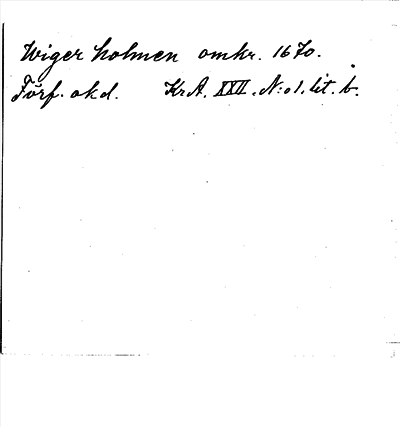 Wigerholmen omkr. 1670.
Förf. okd. Kr.A. XXII. N:o 1. lit. b.